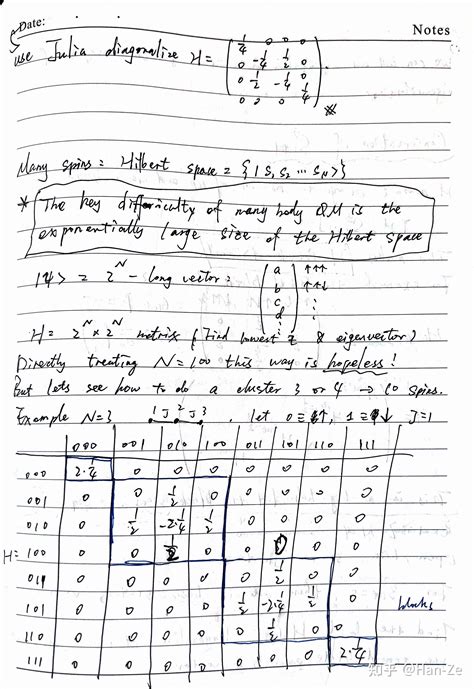 Date:
Notes
use Julia diagonalize H = ( 1/4 0 0 0
0 -1/4 1/2 0
0 1/2 -1/4 0
0 0 0 1/4 ).
Many spins: Hilbert space = { | S1 S2 ... SN > }
* The key difficulty of many body QM is the
exponentially large size of the Hilbert space
|ψ> = 2^N - long vector: ( a ↑↑↑
b ↑↑↓
c :
d :
: )
H = 2^N x 2^N matrix (Find lowest E & eigenvector)
Directly treating N=100 this way is hopeless!
But lets see how to do a cluster 3 or 4 → 10 spins.
Example N=3 1 J 2 J 3 . let 0 ≡ ↑, 1 ≡ ↓ J=1
000 001 010 100 011 101 110 111
000 2·1/4 0 0 0 0 0 0 0
001 0 0 1/2 0 0 0 0 0
010 0 1/2 -2·1/4 1/2 0 0 0 0
H= 100 0 0 1/2 0 0 0 0 0
011 0 0 0 0 0 1/2 0 0
101 0 0 0 0 1/2 -2·1/4 1/2 0 blocks
110 0 0 0 0 0 1/2 0 0
111 0 0 0 0 0 0 0 2·1/4
知乎 @Han-Ze